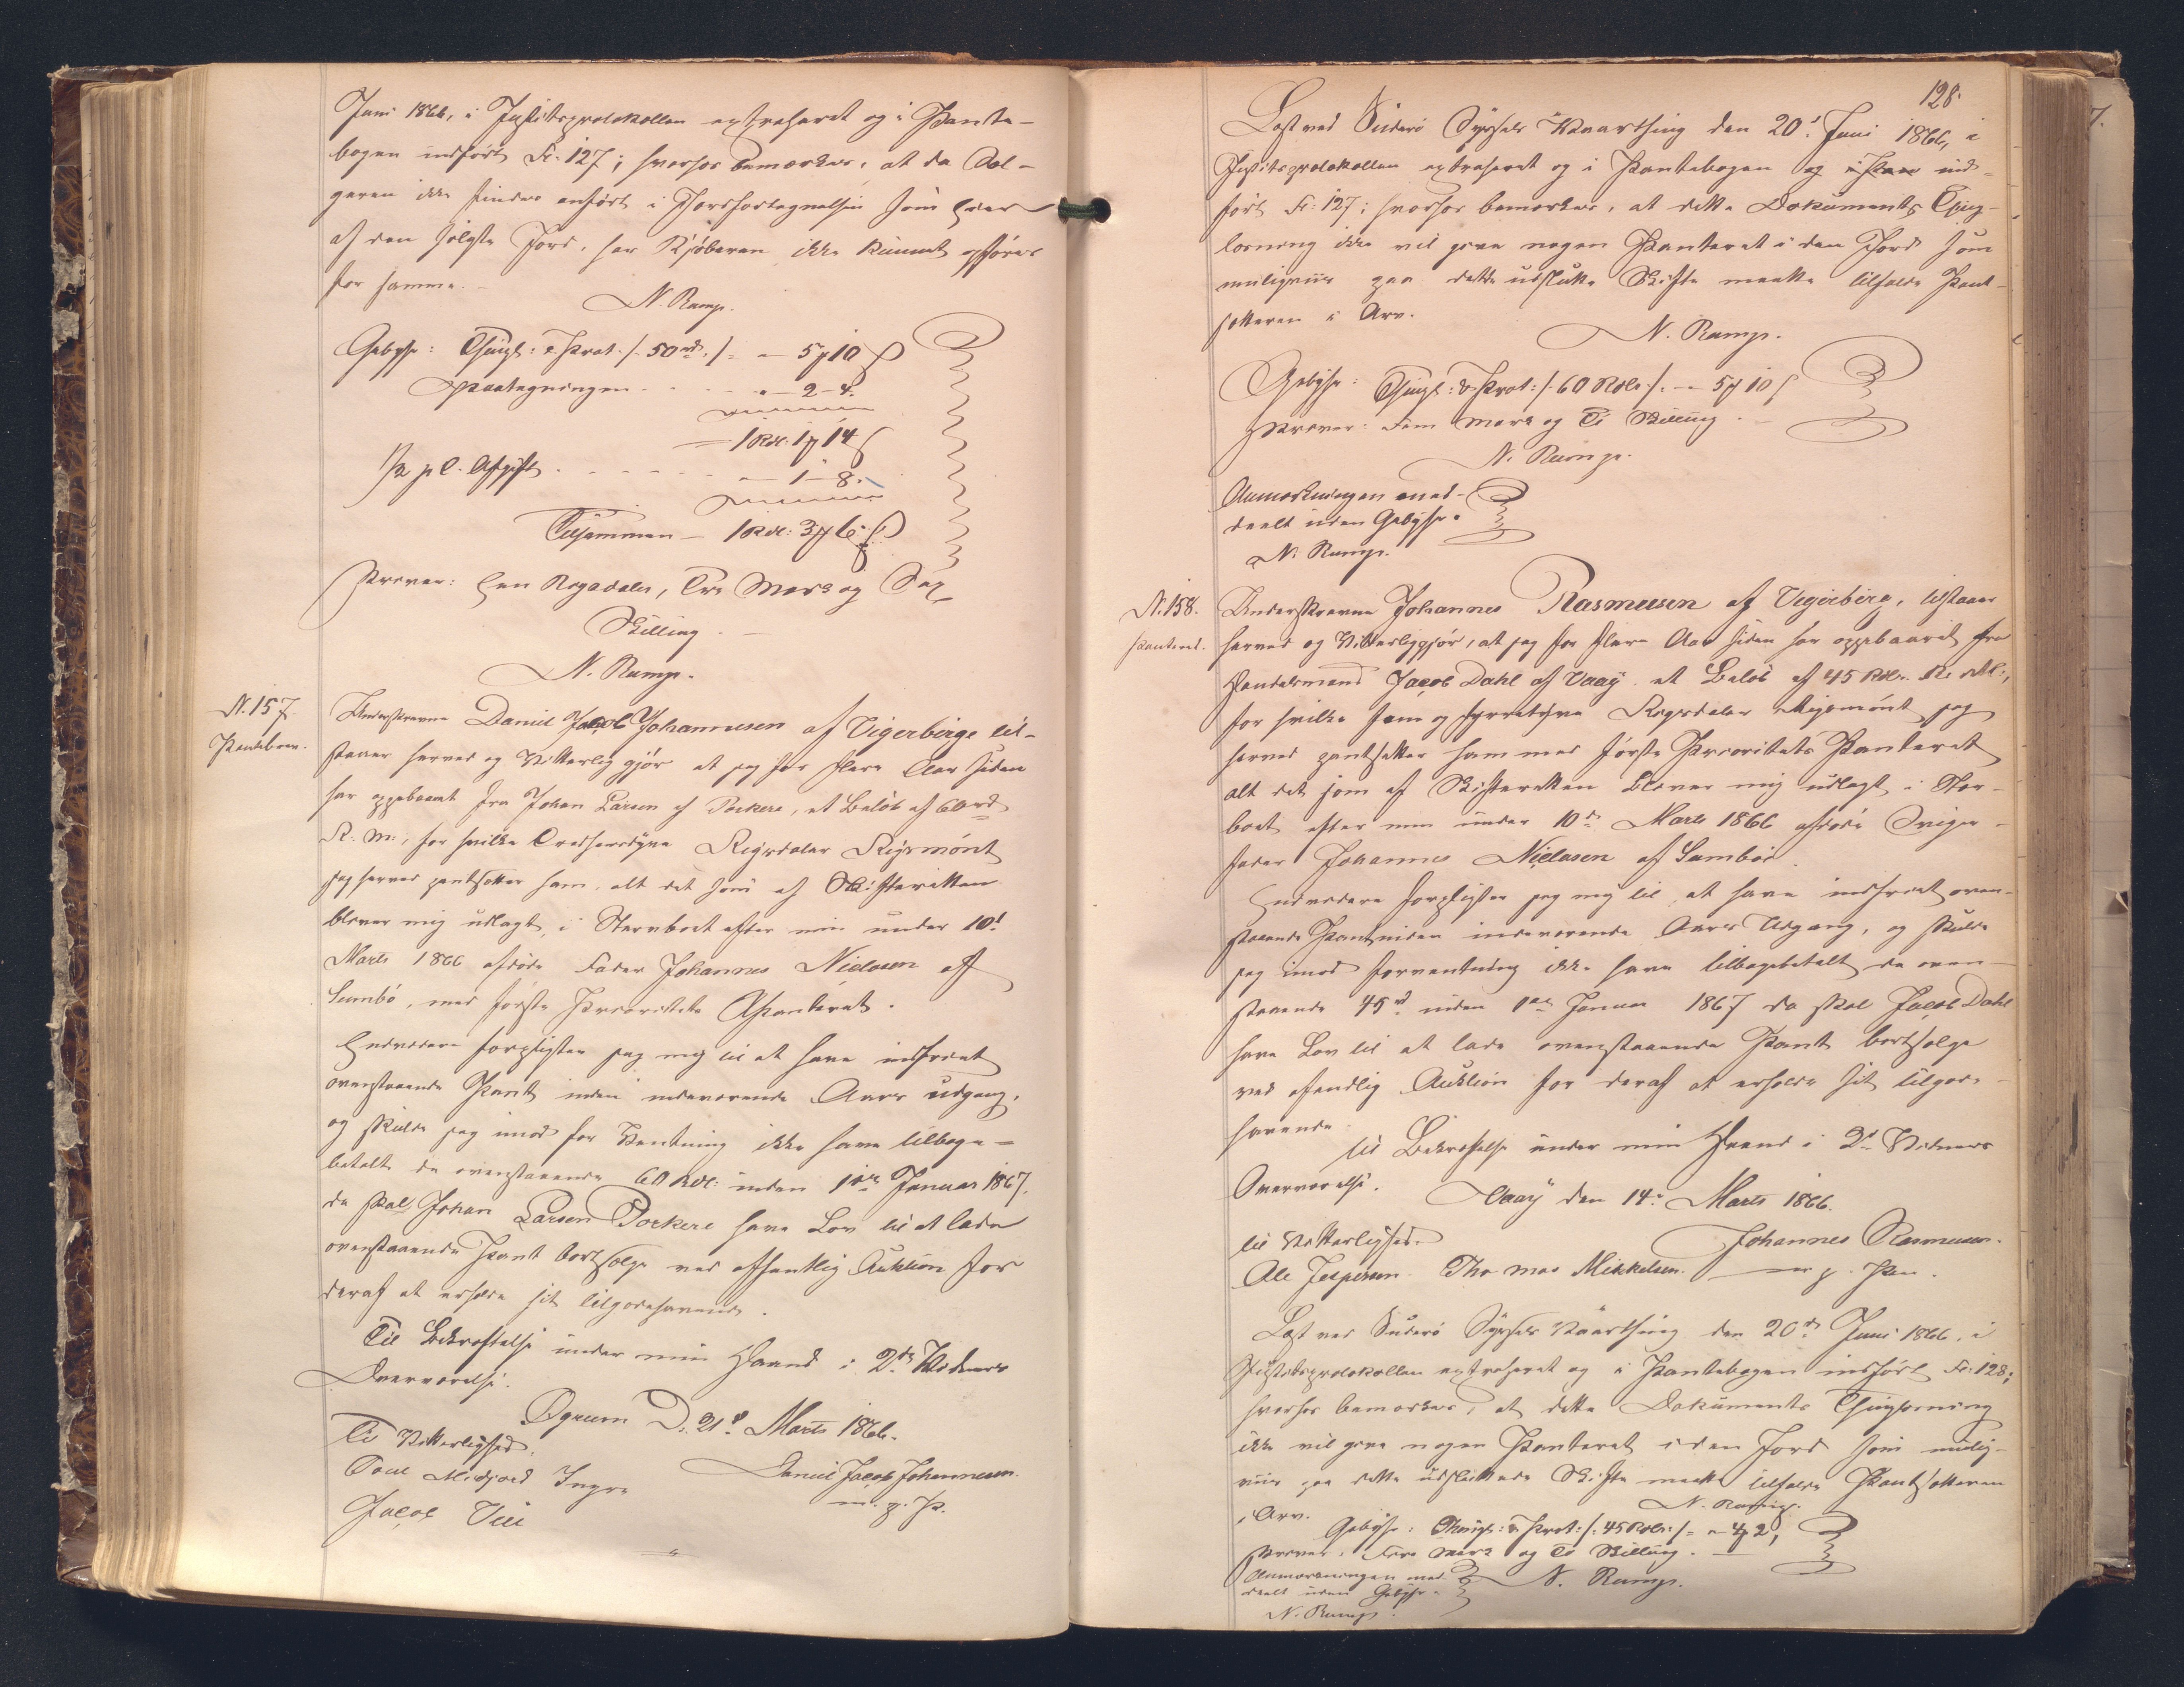 Juni 1866, i Justitsprotokollen extraheret og i Pante-
bogen indført Fo: 127; hvorhos bemærkes, at da Sæl-
geren ikke findes anført i Jordfortegnelsen som Eier
af den solgte Jord, har Kjøberen ikke kunnet opføres
for samme. -
N. Rump.
Gebyhr: Thingl: & Prot: /: 50 rd: /: = - 5 # 10 ß
Paategningen - - - - 2 - 4.
= 1 Rdl: 1 # 14 ß
1/2 pCt. Afgift - - - - - 1 - 8.
Tilsammen - 1 Rdl: 3 # 6 ß
skriver: Een Rigsdaler, Tre Mark og Sex
Skilling. -
N. Rump.
N. 157.
Pantebrev.
Underskrevne Daniel Jacob Johannesen af Vigerbirge til-
staaer herved og Vitterlig gjør at jeg for flere Aar siden
har oppebaaret fra Johan Larsen af Porkere, et Beløb af 60 rd
R. M., for hvilke Tredsindstyve Rigsdaler Rigsmønt
jeg herved pantsætter ham, alt det som af Skifteretten
bliver mig udlagt, i Stervboet efter min under 10d
Marts 1866 afdøde Fader Johannes Nielasen af
Sumbø, med første Prioritets Panteret.
Endvidere forpligter jeg mig til at have indfriet
ovenstaaende Pant inden indeværende Aars udgang,
og skulde jeg imod for Ventning ikke have tilbage-
betalt de ovenstaaende 60 Rdl: inden 1ste Januar 1867,
da skal Johan Larsen Porkere have Lov til at lade
ovenstaaende Pant bortsælge ved offentlig Auktion for
deraf at erholde sit tilgodehavende.
Til Bekræftelse under min Haand i 2de Vidners
Overværelse.
Øgrum D: 21d Marts 1866.
Til Vitterlighed.
Daniel Jacob Johannesen.
Poul Midjord
m. p. P.
Jacob
128.
Læst ved Suderø Sÿssels Vaarthing den 20d Juni 1866, i
Justitsprotokollen extraheret og i Pantebogen og i Pan ind-
ført Fo: 127; hvorhos bemærkes, at dette Dokuments Thing-
læsning ikke vil give nogen Panteret i den Jord som
muligviis paa dette udslutte Skifte maatte tilfalde Pant-
sætteren i Arv.
N. Rump.
Gebÿhr: Thingl: & Prot: /: 60 Rdlr :/. - - 5 # 10 ß
skriver: Fem Mark og Ti Skilling. -
N. Rump.
Anmærkningen med-
deelt uden Gebÿhr.
N. Rump.
N. 158.
Panteret.
Underskrevne Johannes Rasmussen af Vigerbirg, tilstaaer
herved og Vitterliggjør, at jeg for flere Aar siden har oppebaaret fra
Handelsmand Jacob Dahl af Vaaÿ et Beløb af 45 Rdlr. R. M.,
for hvilke fem og fyrretyve Rigsdaler Rigsmønt jeg
herved pantsætter ham med første Prioritets Panteret
alt det som af Skifteretten bliver mig udlagt i Ster-
boet efter min under 10d Marts 1866 afdøde Sviger-
fader Johannes Nielasen af Sumbø.
Endvidere forpligter jeg mig til at have indfriet oven-
staaende Pant inden indeværende Aars Udgang, og skulde
jeg imod Forventning ikke have tilbagebetalt de oven-
staaende 45 rd inden 1ste Januar 1867 da skal Jacob Dahl
have Lov til at lade ovenstaaende Pant bortsælge
ved offendlig Auktion for deraf at erholde sit tilgode-
havende.
til Bekræftelse under min Haand i 2d Vidners
Overværelse.
Vaaÿ den 14d Marts 1866.
til Vitterlighed.
Johannes Rasmussen.
Ole Jespersen. Thomas Mikkelsen. m. p. Pen.
Læst ved Suderø Sÿssels Vaarthing den 20d Juni 1866, i
Justitsprotokollen extraheret og i Pantebogen indført Fo: 128;
hvorhos bemærkes, at dette Dokuments Thinglæsning
ikke vil give nogen Panteret i den Jord som mulig-
viis paa dette udsluttede Skifte maatte tilfalde Pantsætteren
i Arv.
N. Rump.
Gebÿhr: Thingl: & Prot: /: 45 Rdlr: /: - - 4 # 2 ß
skriver: Fire Mark og To Skilling. -
Anmærkningen med-
deelt uden Gebÿhr.
N. Rump.
N. Rump.